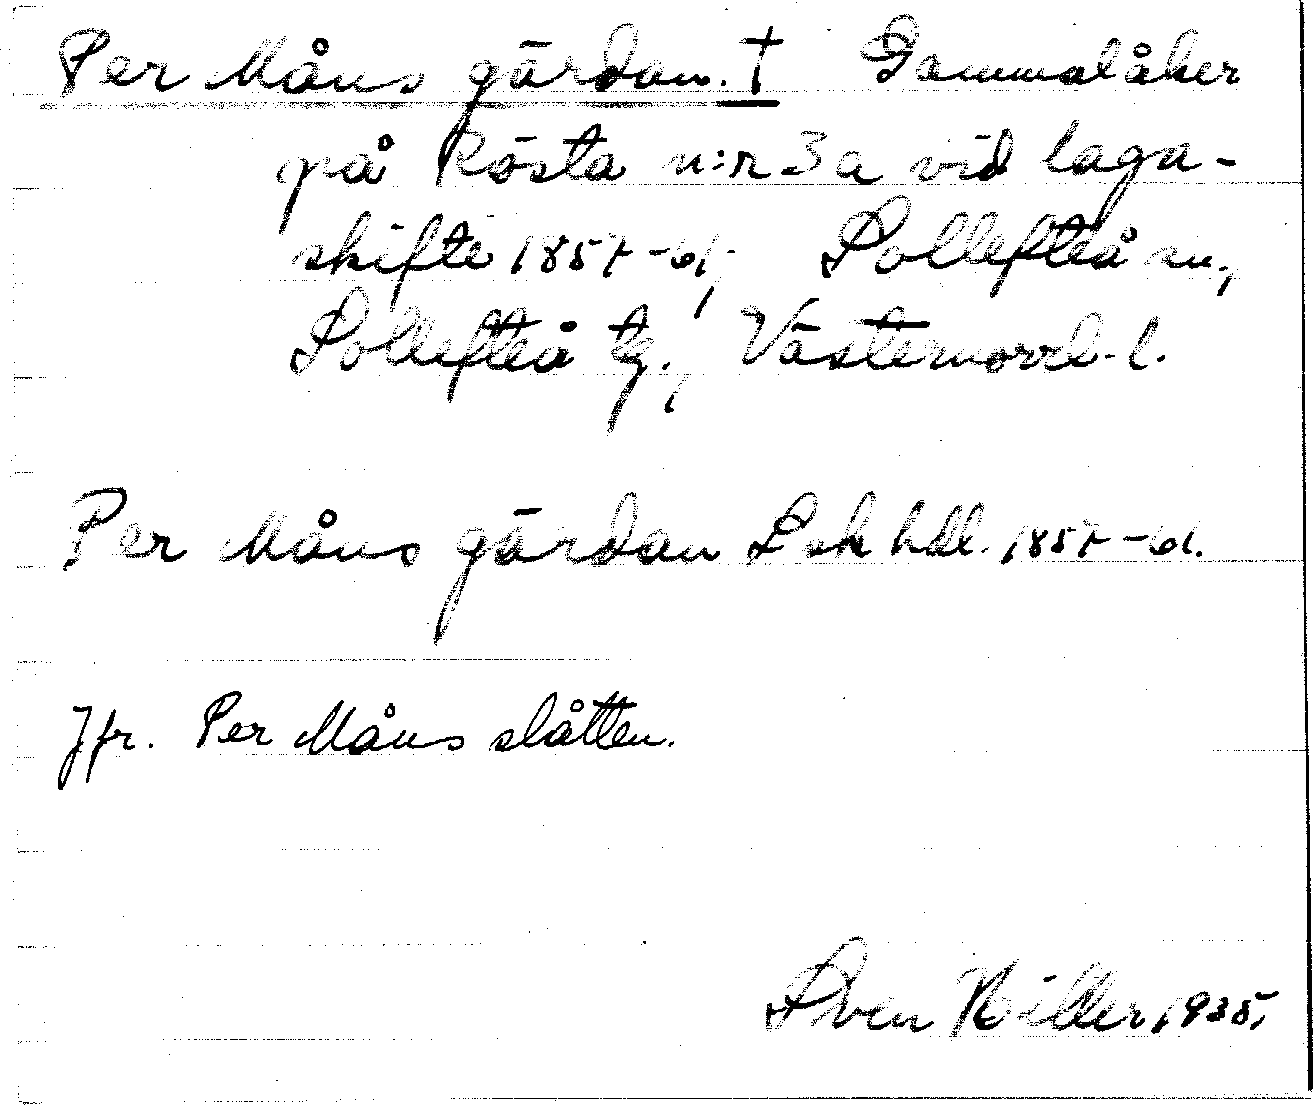 Per Måns gärdan. † Gammalåker
på Rösta n:r 3a vid laga-
skifte 1857-61, Sollefteå sn.,
Sollefteå tg., Västernorrl. l.
Per Måns gärdan L sk hdl. 1857-61.
Jfr. Per Måns slåtten.
Sven Hiller, 1935,